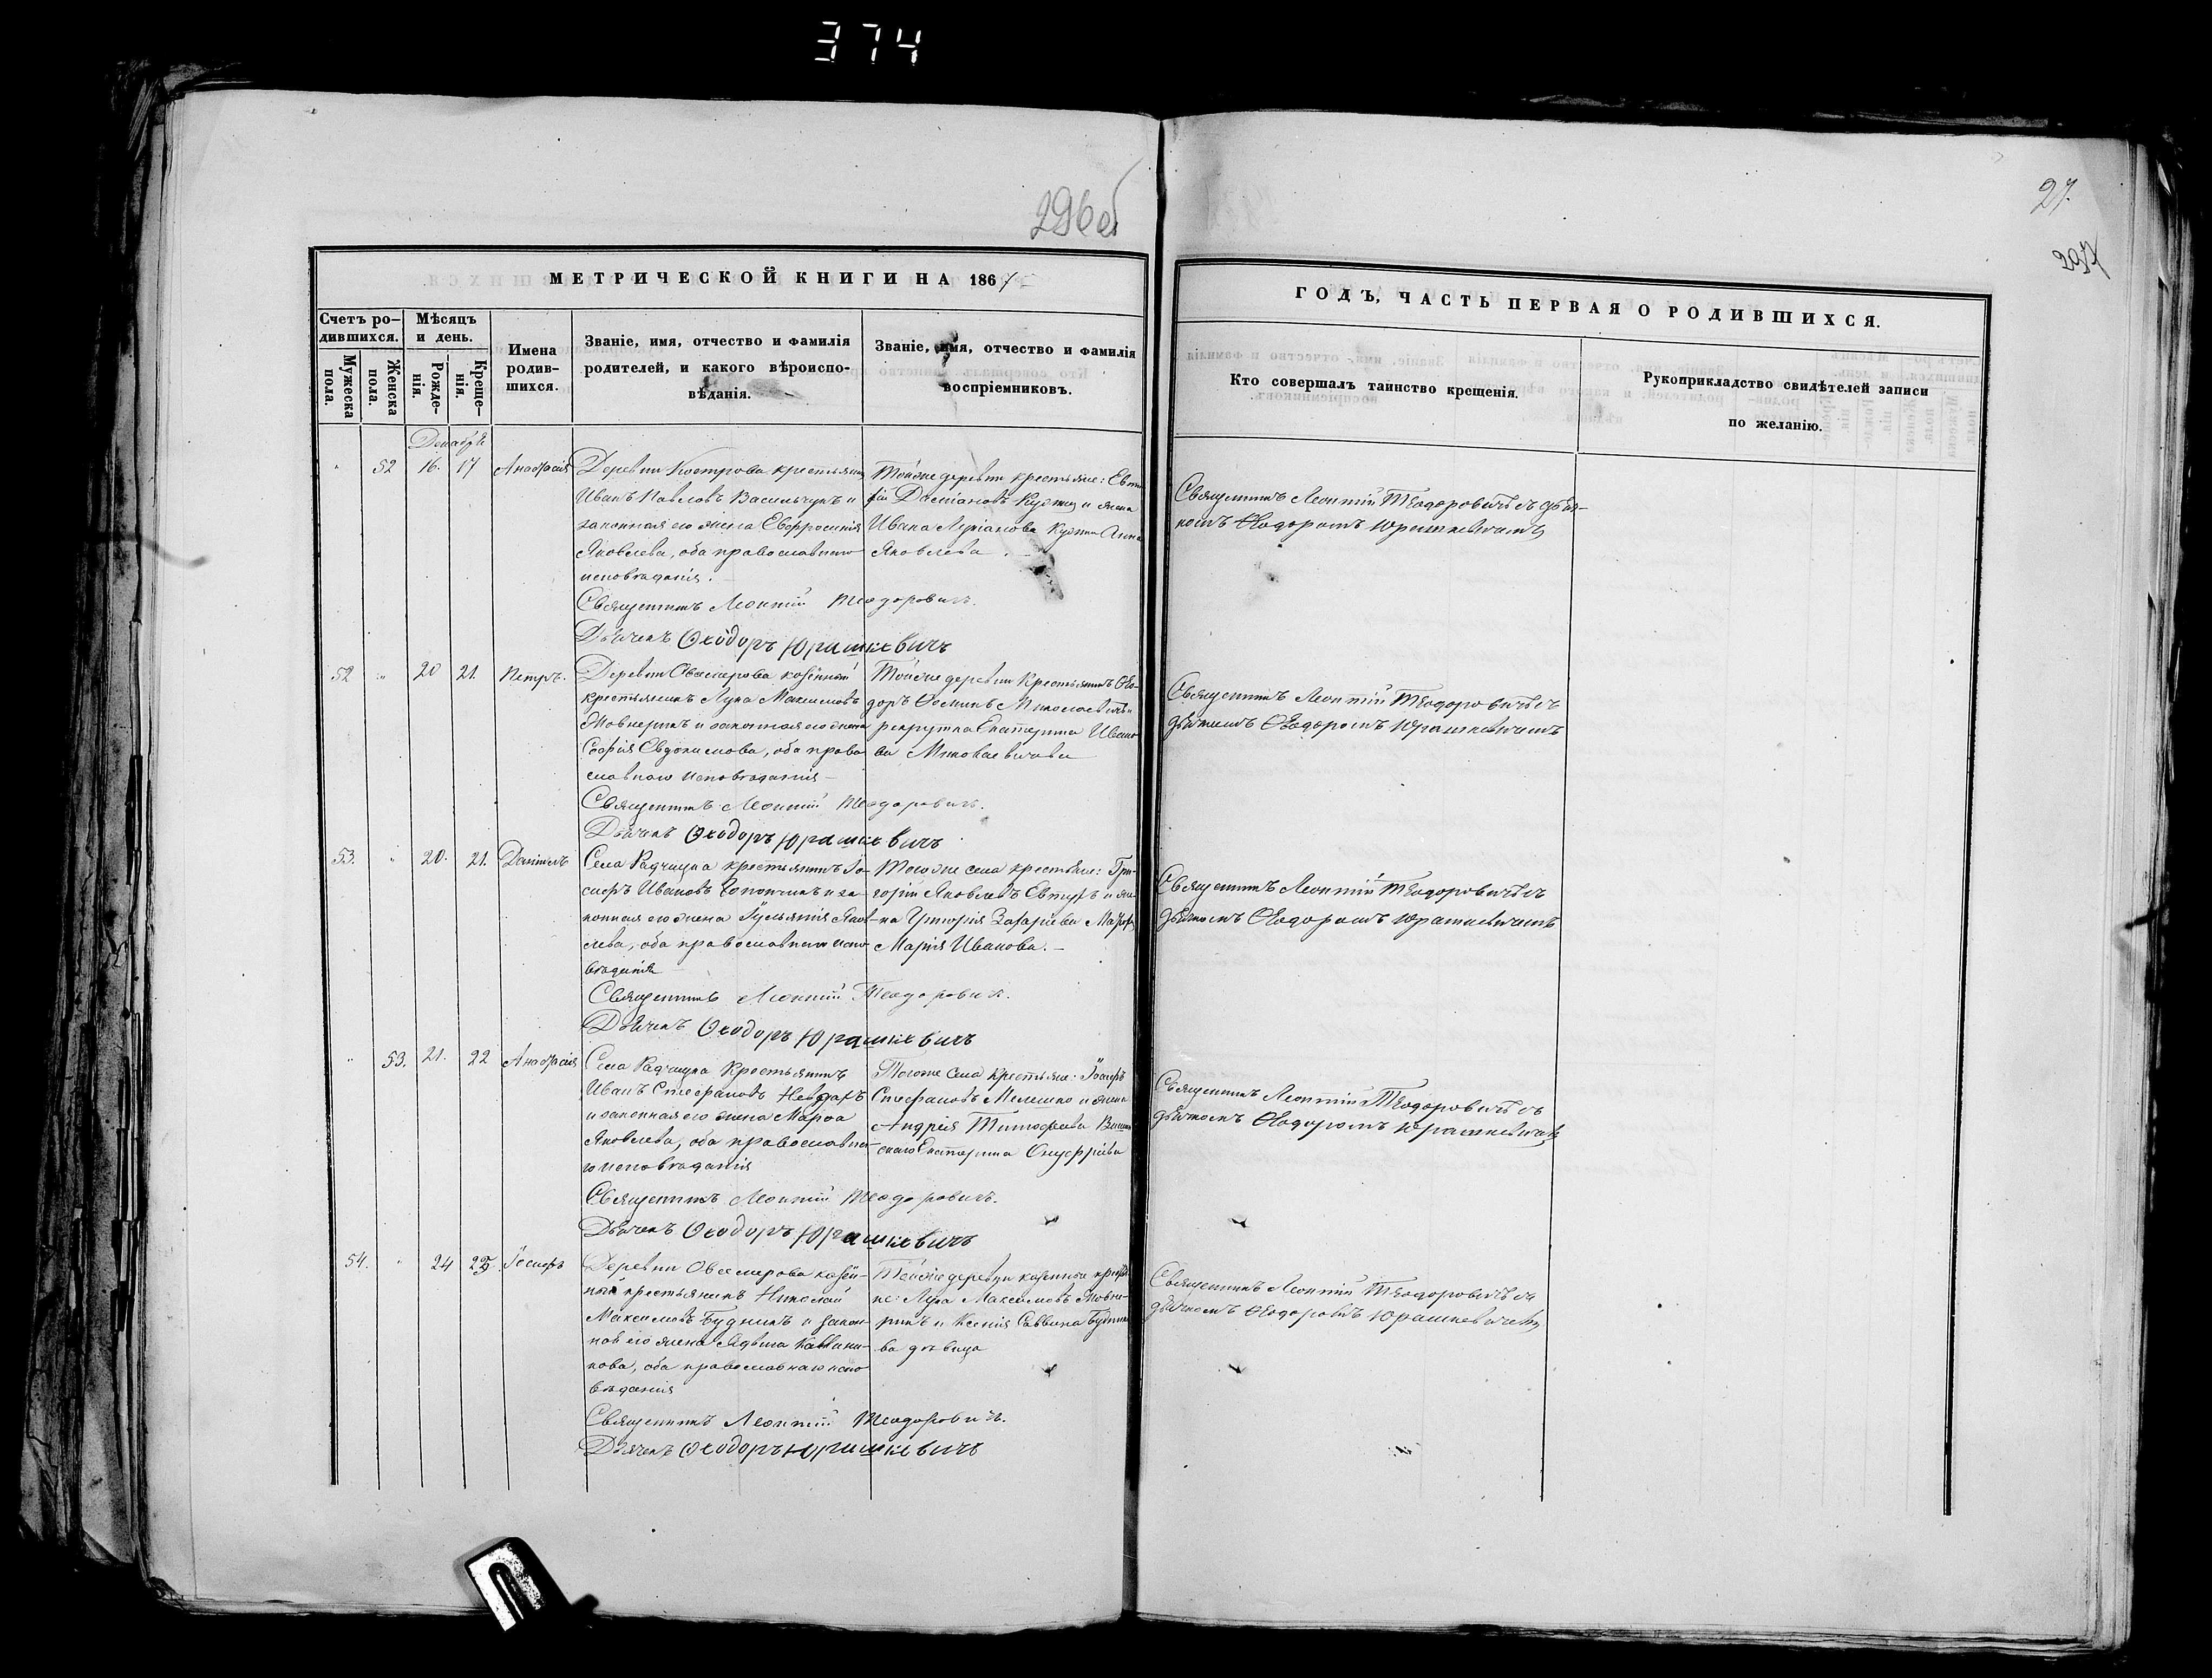 374
296об
27.
297
МЕТРИЧЕСКОЙ КНИГИ НА 1867
ГОДЪ, ЧАСТЬ ПЕРВАЯ О РОДИВШИХСЯ.
Счетъ ро-
дившихся.
Мужеска пола.
Женска пола.
Мѣсяцъ
и день.
Рожде-
нія.
Креще-
нія.
Имена
родив-
шихся.
Званіе, имя, отчество и фамилія
родителей, и какого вѣроиспо-
вѣданія.
Званіе, имя, отчество и фамилія
воспріемниковъ.
Кто совершалъ таинство крещенія.
Рукоприкладство свидѣтелей записи
по желанію.
Декабрь
" 52 16. 17 Анастасія
Деревни Кострова крестьянинъ
Иванъ Павловъ Васильчукъ и
законная его жена Евфросинія
Яковлева, оба православнаго
исповѣданія.
Священникъ Леонтій Теодоровичъ.
Дьячекъ Ѳеодоръ Юрашкевичъ
Тойже деревни крестьяне:
Даміановъ и жена
Ивана Анна
Яковлева.
Священникъ Леонтій Теодоровичъ съ дья-
комъ Ѳеодоромъ Юрашкевичемъ
52 " 20 21. Петръ.
Деревни казённый
крестьянинъ Лука Максимовъ
и законная его жена
Софія Евдокимова, оба право-
славнаго исповѣданія
Священникъ Леонтій Теодоровичъ.
Дьячекъ Ѳеодоръ Юрашкевичъ
Тойже деревни крестьянинъ Ѳео-
доръ
рекрутка Екатерина Ивано-
ва
Священникъ Леонтій Теодоровичъ съ
дьячкомъ Ѳеодоромъ Юрашкевичемъ
53. " 20. 21. Даніилъ
Села Радчицка крестьянинъ Іо-
сифъ Ивановъ и за-
конная его жена Яков-
лева, оба православнаго испо-
вѣданія
Священникъ Леонтій Теодоровичъ.
Дьячекъ Ѳеодоръ Юрашкевичъ
Тогоже села крестьяне: Гри-
горій Яковлевъ и же-
на Григорія Захаріева
Марія Иванова.
Священникъ Леонтій Теодоровичъ съ
дьячкомъ Ѳеодоромъ Юрашкевичемъ
" 53. 21. 22 Анастасія
Села Радчицка Крестьянинъ
Иванъ Стефановъ
и законная его жена Марѳа
Яковлева, оба православна-
го исповѣданія
Священникъ Леонтій Теодоровичъ.
Дьячекъ Ѳеодоръ Юрашкевичъ
Тогоже села крестьяне: Іосифъ
Стефановъ Мелешко и жена
Андрея Тимофеева
Екатерина Онуфріева
Священникъ Леонтій Теодоровичъ съ
дьячкомъ Ѳеодоромъ Юрашкевичемъ
54. " 24 25 Іосифъ
Деревни казён-
ный крестьянинъ Николай
Максимовъ Будникъ и закон-
ная его жена
оба православнаго испо-
вѣданія
Священникъ Леонтій Теодоровичъ.
Дьячекъ Ѳеодоръ Юрашкевичъ
Тойже деревни казенные крестья-
не: Лука Максимовъ
и Ксенія Саввина
ва дѣвица
Священникъ Леонтій Теодоровичъ съ
дьячкомъ Ѳеодоромъ Юрашкевичемъ